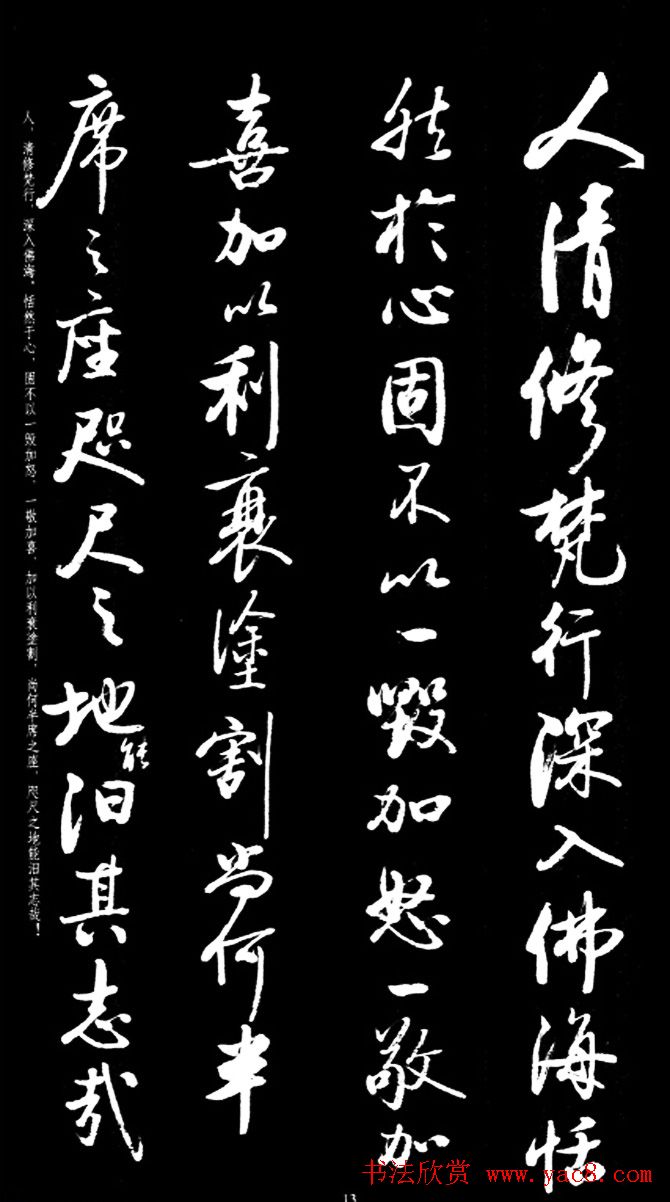 人清修梵行深入佛海恬
然於心固不以一毁加怒一敬加
喜加以利衰塗割尚何半
席之座咫尺之地能汩其志哉
人，清修梵行，深入佛海，恬然于心，固不以一毁加怒，一敬加喜，加以利衰塗割，尚何半席之座，咫尺之地能汩其志哉！
书法欣赏 www.yac8.com
13